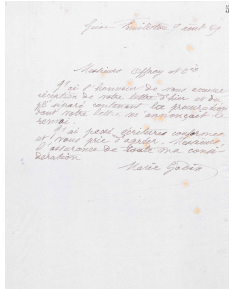 Messieurs Offroy et Cie
J'ai l'honneur de vous accuser
réception de votre lettre d'hier et du
pli séparé contenant la procuration
dont votre lettre m'annonçait le
renvoi.
J'ai passé écritures conformes
et vous prie d'agréer, Messieurs,
l'assurance de toute ma consi-
dération
Marie